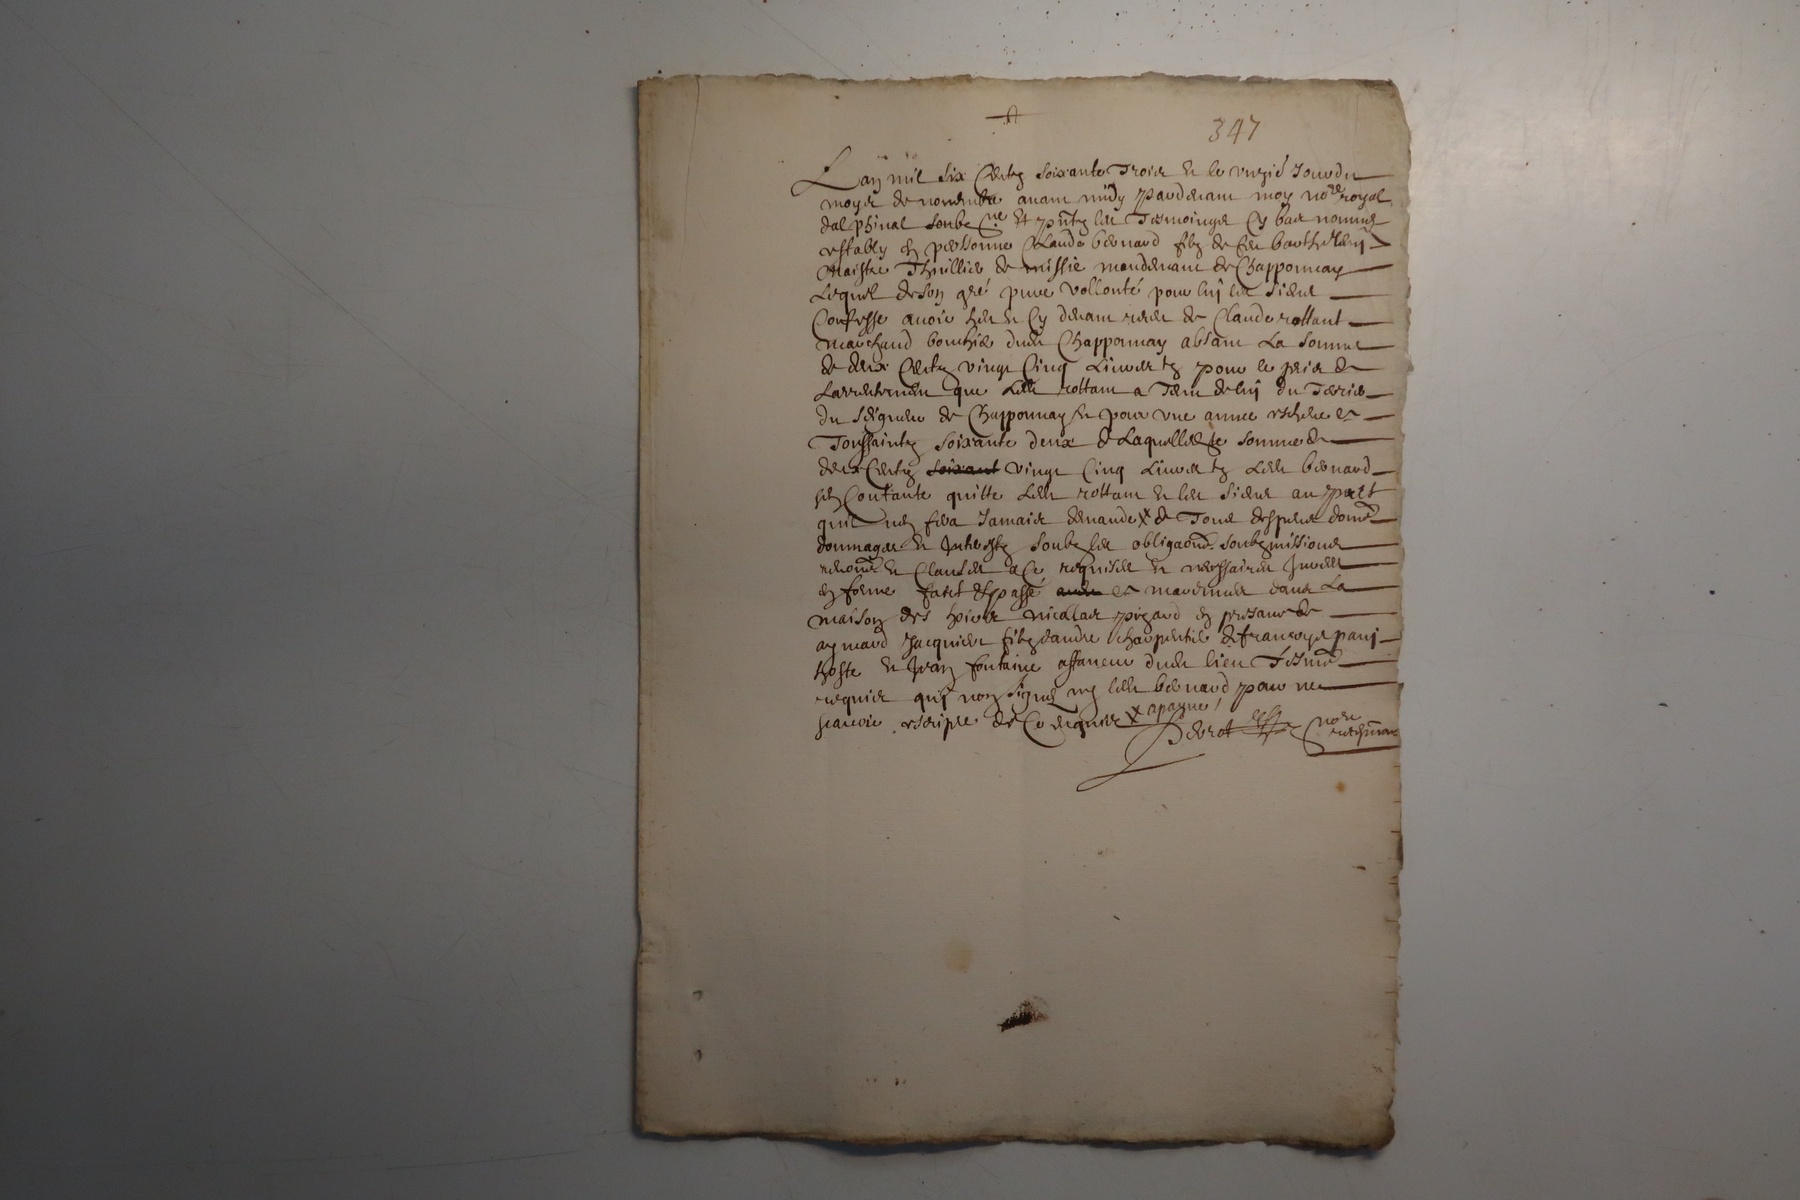 347
Lan mil six Centz soixante Trois et le vingtie Jour du
moys de novembre avant midy pardevant moy nore royal
dalphinal soubz ne Et pntz les Tesmoings Cy bas nommes
estably en personne Claude bernard filz de feu barthellemy
Maistre Thuillier de missie mandement de Chapponnay
Lequel de son gré pure vollonté pour luy les siens
Confesse avoir heu et Cy devant receu de Claude rottant
marchand bouchier dudt Chapponnay absant La somme
de deux Centz vingt Cinq Livres tz pour le pris de
Larrentement que Ledt rottant a Tenu de luy du Terrier
du Seigneur de Chapponnay Et pour une annee escheue es
Toussaintz soixante deux de Laquelle somme de
deux Centz soixant vingt Cinq Livres tz Ledt bernard
sen Contante quitte Ledt rottant et les siens au part
quil nen fera Jamais demande X de Tous despens
dommages et Interestz soubz les obligaons soubzmissions
renons et Clauses a Ce requises et necessaires Jurees
en forme faict Et passé es marennes dans La
maison des hoirs nicollas pigard en presance de
aymard Jacquier filz dandre charpentier de francoys pany
hoste et Jean fontaine affaneur dudt lieu Tesmo
requis quy nont signé ny ledt bernard pour ne
scavoir escripre de Ce enquis X apayne